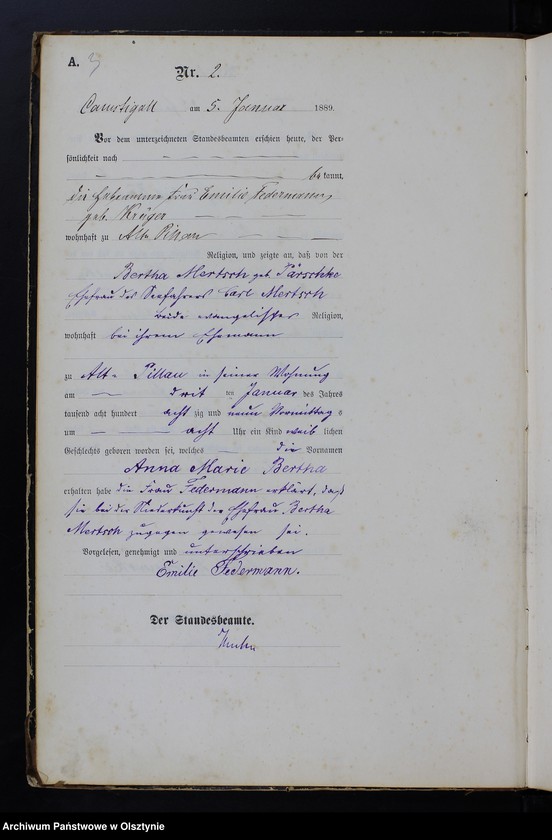 A.
Nr. 2.
Camstigall am 5. Januar 1889.
Vor dem unterzeichneten Standesbeamten erschien heute, der Per-
sönlichkeit nach
bekannt,
die Hebamme Frau Emilie Federmann,
geb. Krüger
wohnhaft zu Alt-Pillau
Religion, und zeigte an, daß von der
Bertha Mertsch geb. Pärschke
Ehefrau des Seefahrers Carl Mertsch
beide evangelischer Religion,
wohnhaft bei ihrem Ehemann
zu Alt-Pillau in seiner Wohnung
am drit ten Januar des Jahres
tausend acht hundert acht zig und neun Vormittag s
um acht Uhr ein Kind weib lichen
Geschlechts geboren worden sei, welches die Vornamen
Anna Marie Bertha
erhalten habe die Frau Federmann erklärt, daß
sie bei der Niederkunft der Ehefrau Bertha
Mertsch zugegen gewesen sei.
Vorgelesen, genehmigt und unterschrieben
Emilie Federmann.
Der Standesbeamte.
Archiwum Państwowe w Olsztynie